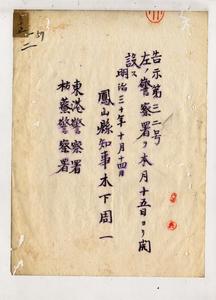 告示第三二号
左ノ警察署ヲ本月十五日ヨリ開
設ス
明治三十年十月十四日
鳳山縣知事木下周一
東港警察署
枋藔警察署